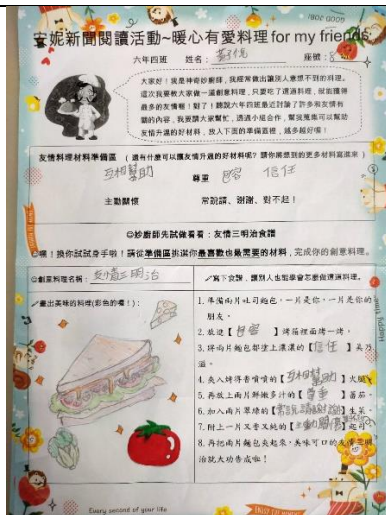 安妮新聞閱讀活動~暖心有愛料理 for my friends
六年四班 姓名： 座號：
大家好！我是神奇妙廚師，我經常做出讓別人意想不到的料理。
這次我要教大家做一道創意料理，只要吃了這道料理，就能獲得
最多的友情喔！對了！聽說六年四班最近討論了許多和友情有
關的內容，我要請大家幫忙，透過小組合作，幫我蒐集可以幫助
友情升溫的好材料，放入下面的準備區裡，越多越好喔！
友情料理材料準備區（還有什麼可以讓友情升溫的好材料呢？請你將想到的更多材料寫進來）
互相幫助 尊重 包容 信任
主動關懷 常說請、謝謝、對不起！
☺妙廚師先試做看看：友情三明治食譜
☺嘿！換你試試身手啦！請從準備區挑選你最喜歡也最需要的材料，完成你的創意料理。
☺創意料理名稱：友情三明治
畫出美味的料理(彩色的喔！)：
寫下食譜，讓別人也能學會怎麼做這道料理。
1. 準備兩片吐司麵包，一片是你，一片是你的
朋友。
2. 放進【包容】烤箱裡面烤一烤。
3. 將兩片麵包都塗上濃濃的【信任】美乃
滋。
4. 夾入烤得香噴噴的【互相幫助】火腿。
5. 再放上兩片鮮嫩多汁的【尊重】蕃茄。
6. 加入兩片翠綠的【常說請謝謝】生菜。
7. 附上一片又香又純的【主動關懷】起司
8. 再把兩片麵包夾起來，美味可口的友情三明
治就大功告成啦！
Every second of your life
ENJOY THE MOMENT